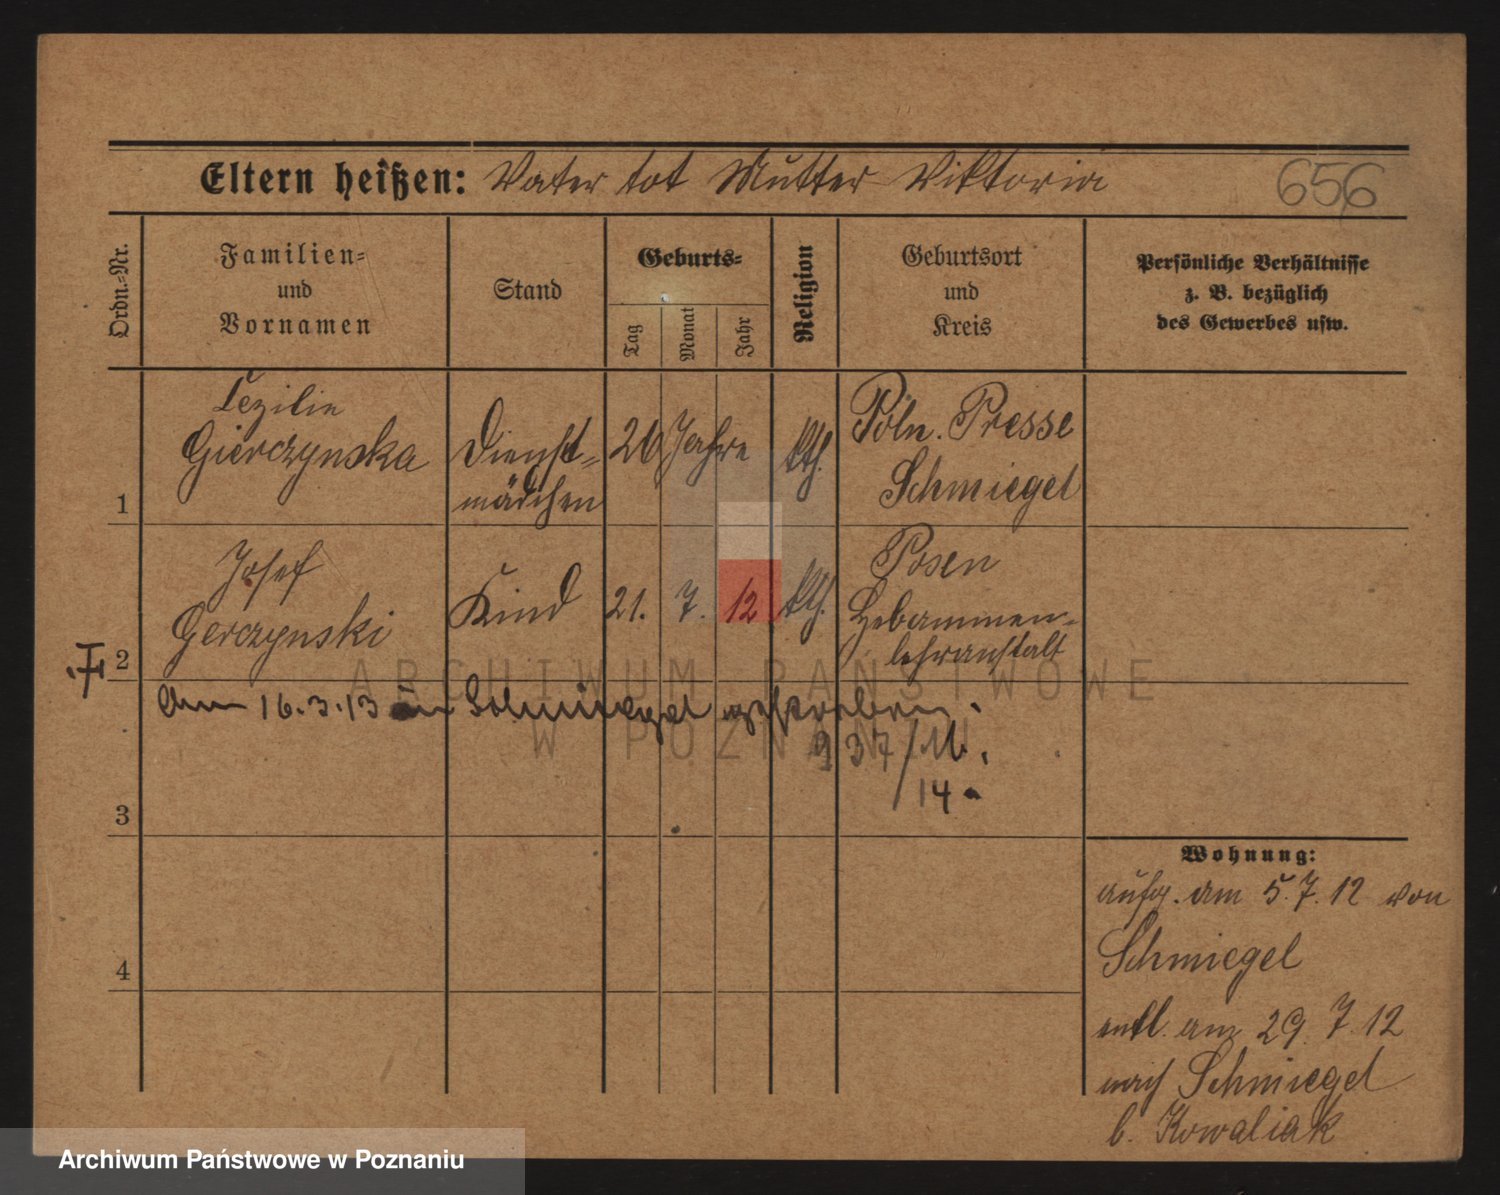 Eltern heißen: Vater tot Mutter Viktoria
656
Ordn.-Nr.
Familien-
und
Vornamen
Stand
Geburts-
Tag
Monat
Jahr
Religion
Geburtsort
und
Kreis
Persönliche Verhältnisse
z. B. bezüglich
des Gewerbes usw.
1
Cezilie
Gierczynska
Dienst-
mädchen
26 Jahre
kth.
Poln. Presse
Schmiegel
2
Josef
Gerczynski
Kind
21. 7. 12
kth.
Posen
Hebammen-
lehranstalt
Am 16.3.13 in Schmiegel gestorben.
937/16.
14
3
4
Wohnung:
aufg. am 5.7.12 von
Schmiegel
entl. am 29.7.12
nach Schmiegel
b. Kowaliak
ARCHIWUM PAŃSTWOWE
W POZNANIU
Archiwum Państwowe w Poznaniu